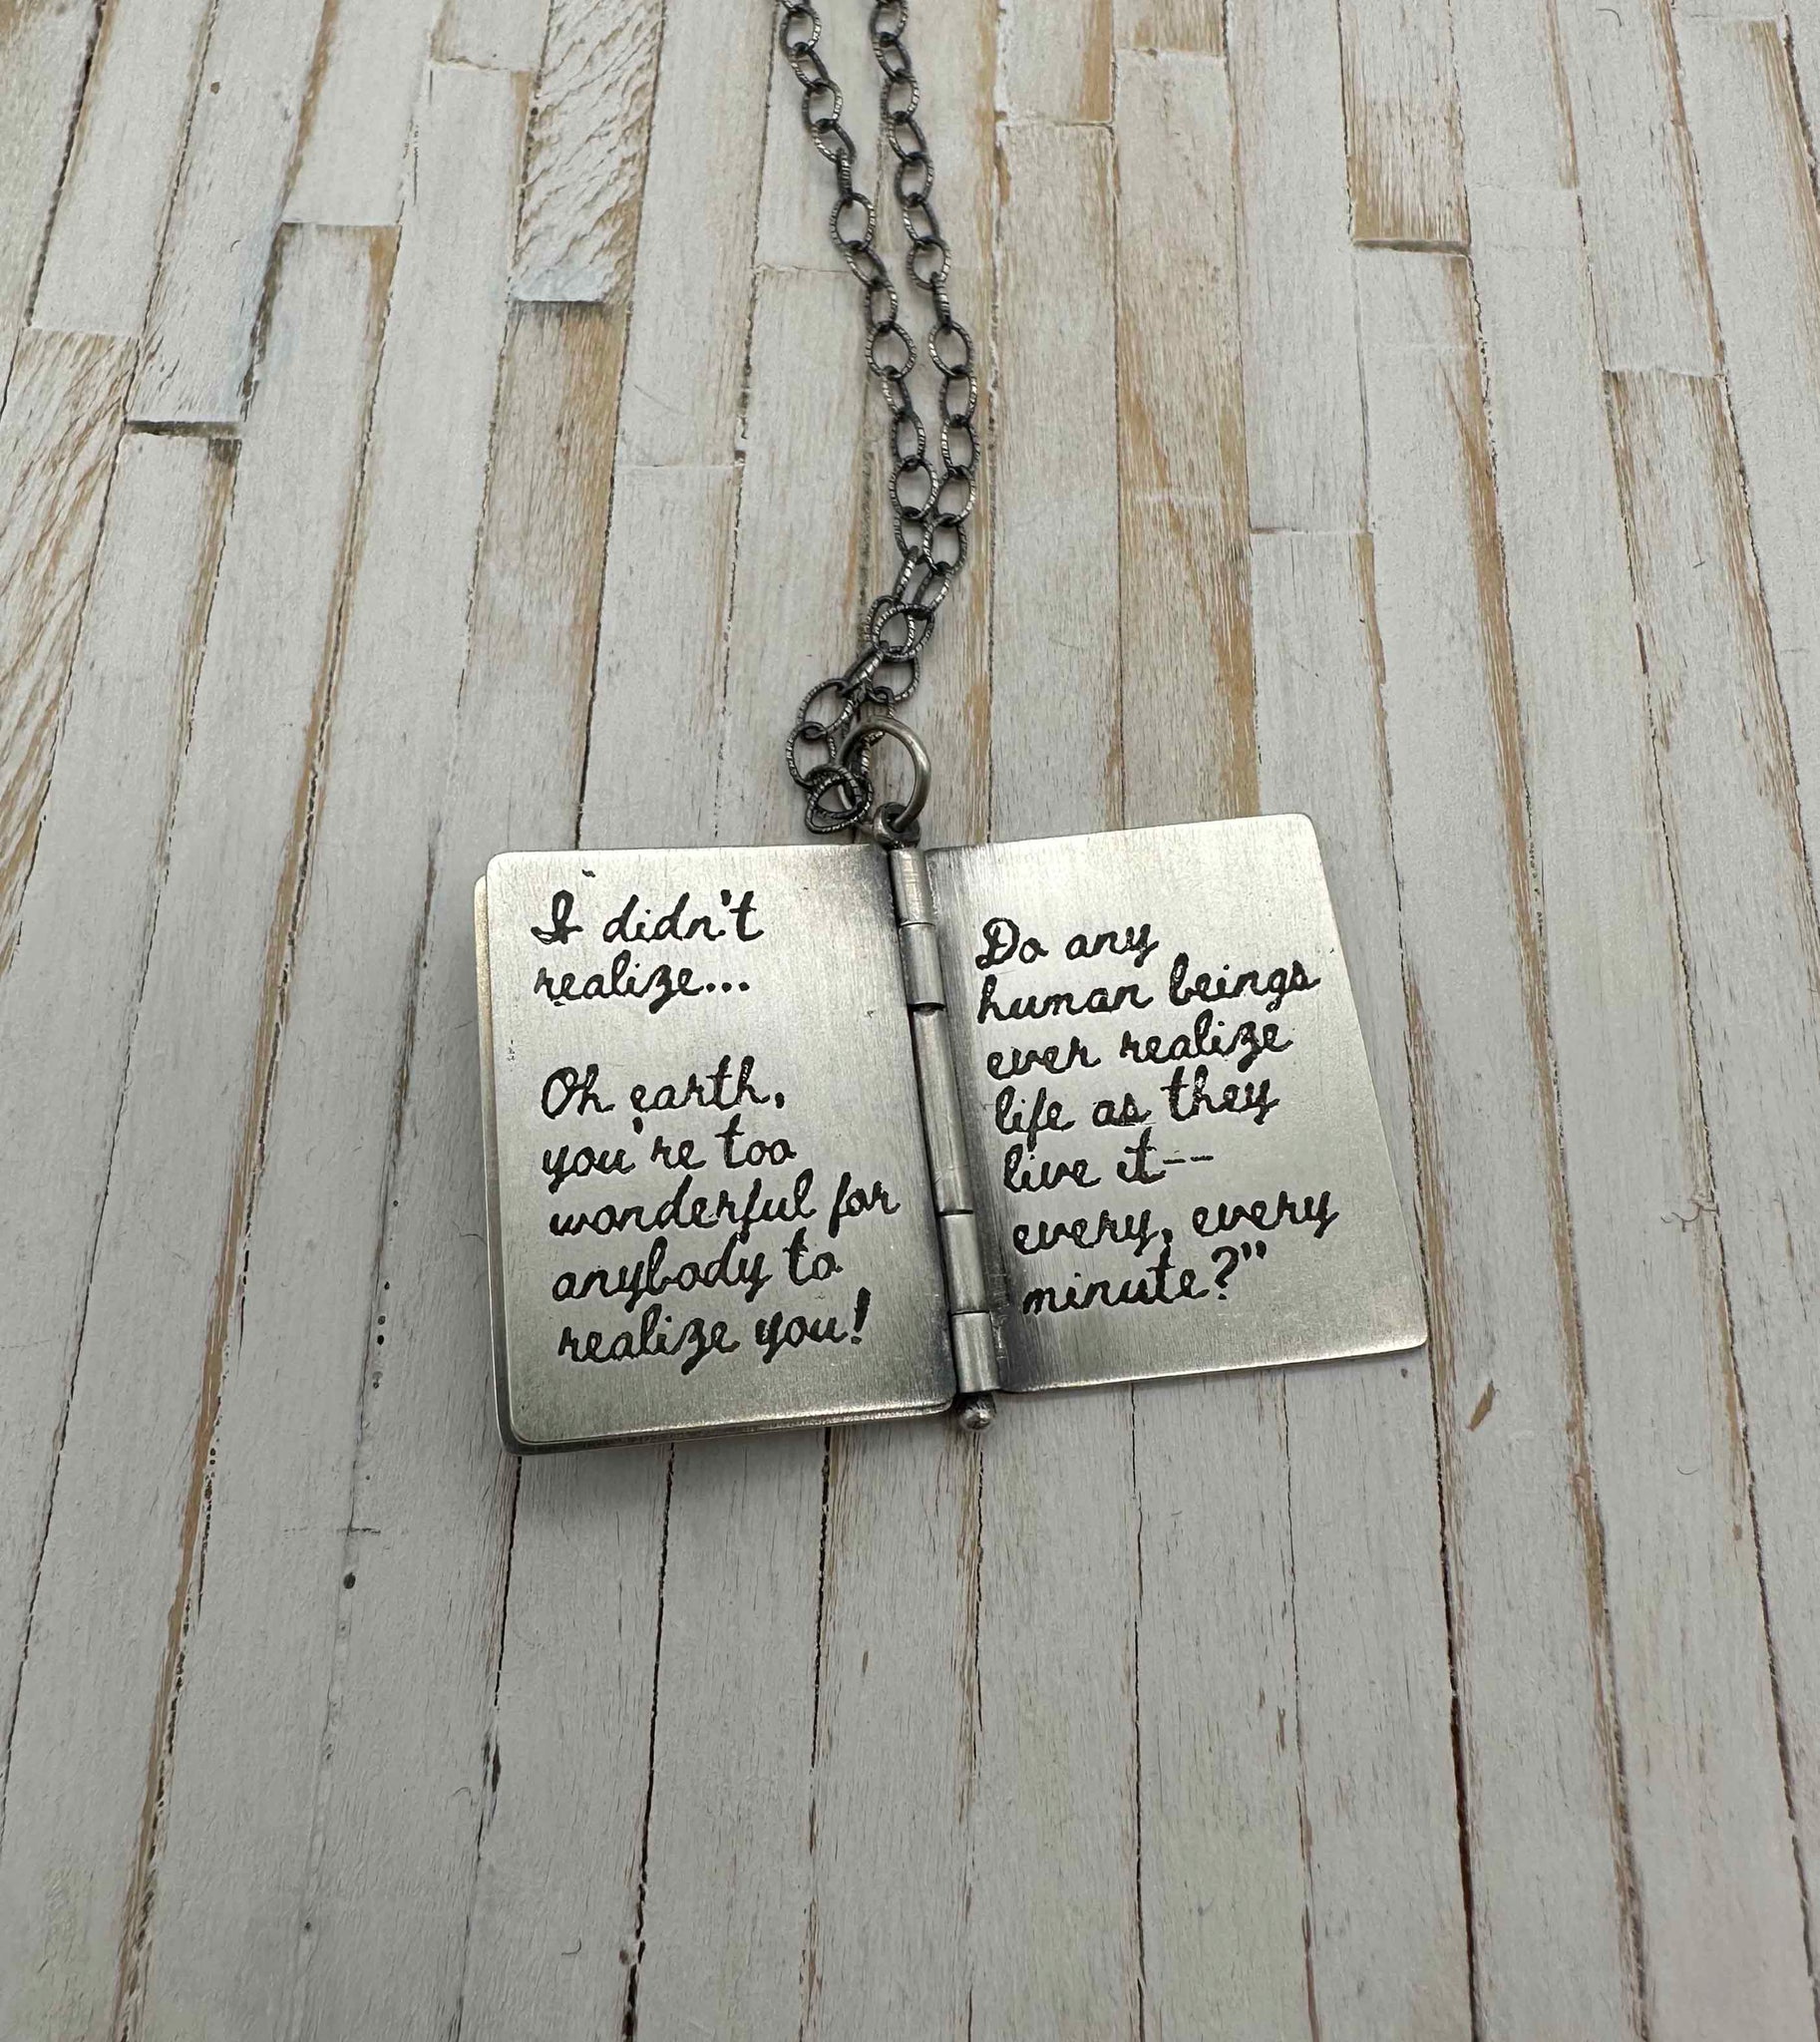 I didn't
realize...
Oh earth,
you're too
wonderful for
anybody to
realize you!
Do any
human beings
ever realize
life as they
live it--
every, every
minute?"